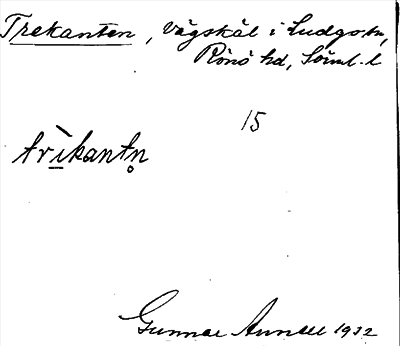 Trekanten, vägskäl i Ludgo sn,
Rönö hd, Söml. l
15
trìkantn̥
Gunnar Annell 1932